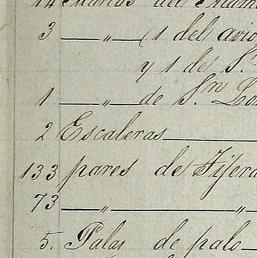 14 Marcos del
3 — „ — (1 del
y 1 de S.
1 — „ — de Sn.
2 Escaleras
133 pares de Tijera
73 — „ — „
5. Palas de palo